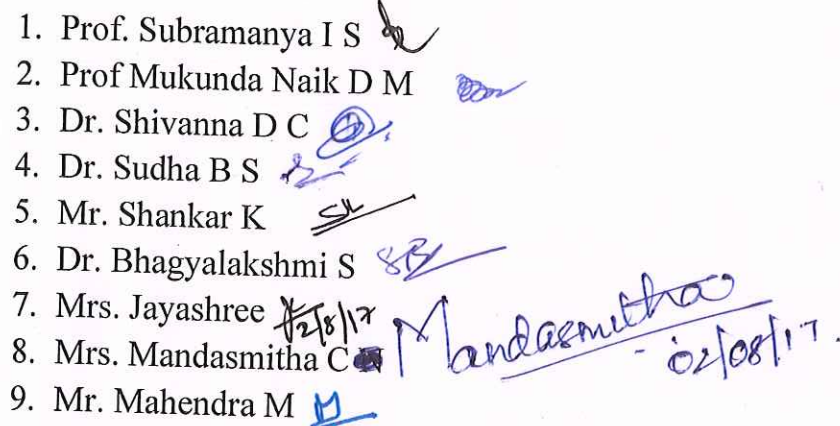 1. Prof. Subramanya I S
2. Prof Mukunda Naik D M
3. Dr. Shivanna D C
4. Dr. Sudha B S
5. Mr. Shankar K
6. Dr. Bhagyalakshmi S SB
7. Mrs. Jayashree 2/8/17
8. Mrs. Mandasmitha C Mandasmitha 02/08/17.
9. Mr. Mahendra M M